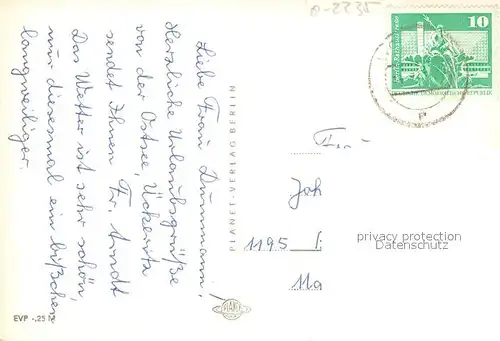 0-2235
10
DEUTSCHE DEMOKRATISCHE REPUBLIK
Liebe Frau Dummann!
Herzliche Urlaubsgrüße
von der Ostsee, Ückeritz
sendet Ihnen Fr. Arndt
Das Wetter ist sehr schön,
nur diesesmal ein bißchen
langweiliger.
PLANET-VERLAG BERLIN
PLANET
Joh
1195
11a
privacy protection
Datenschutz
EVP -,25 M